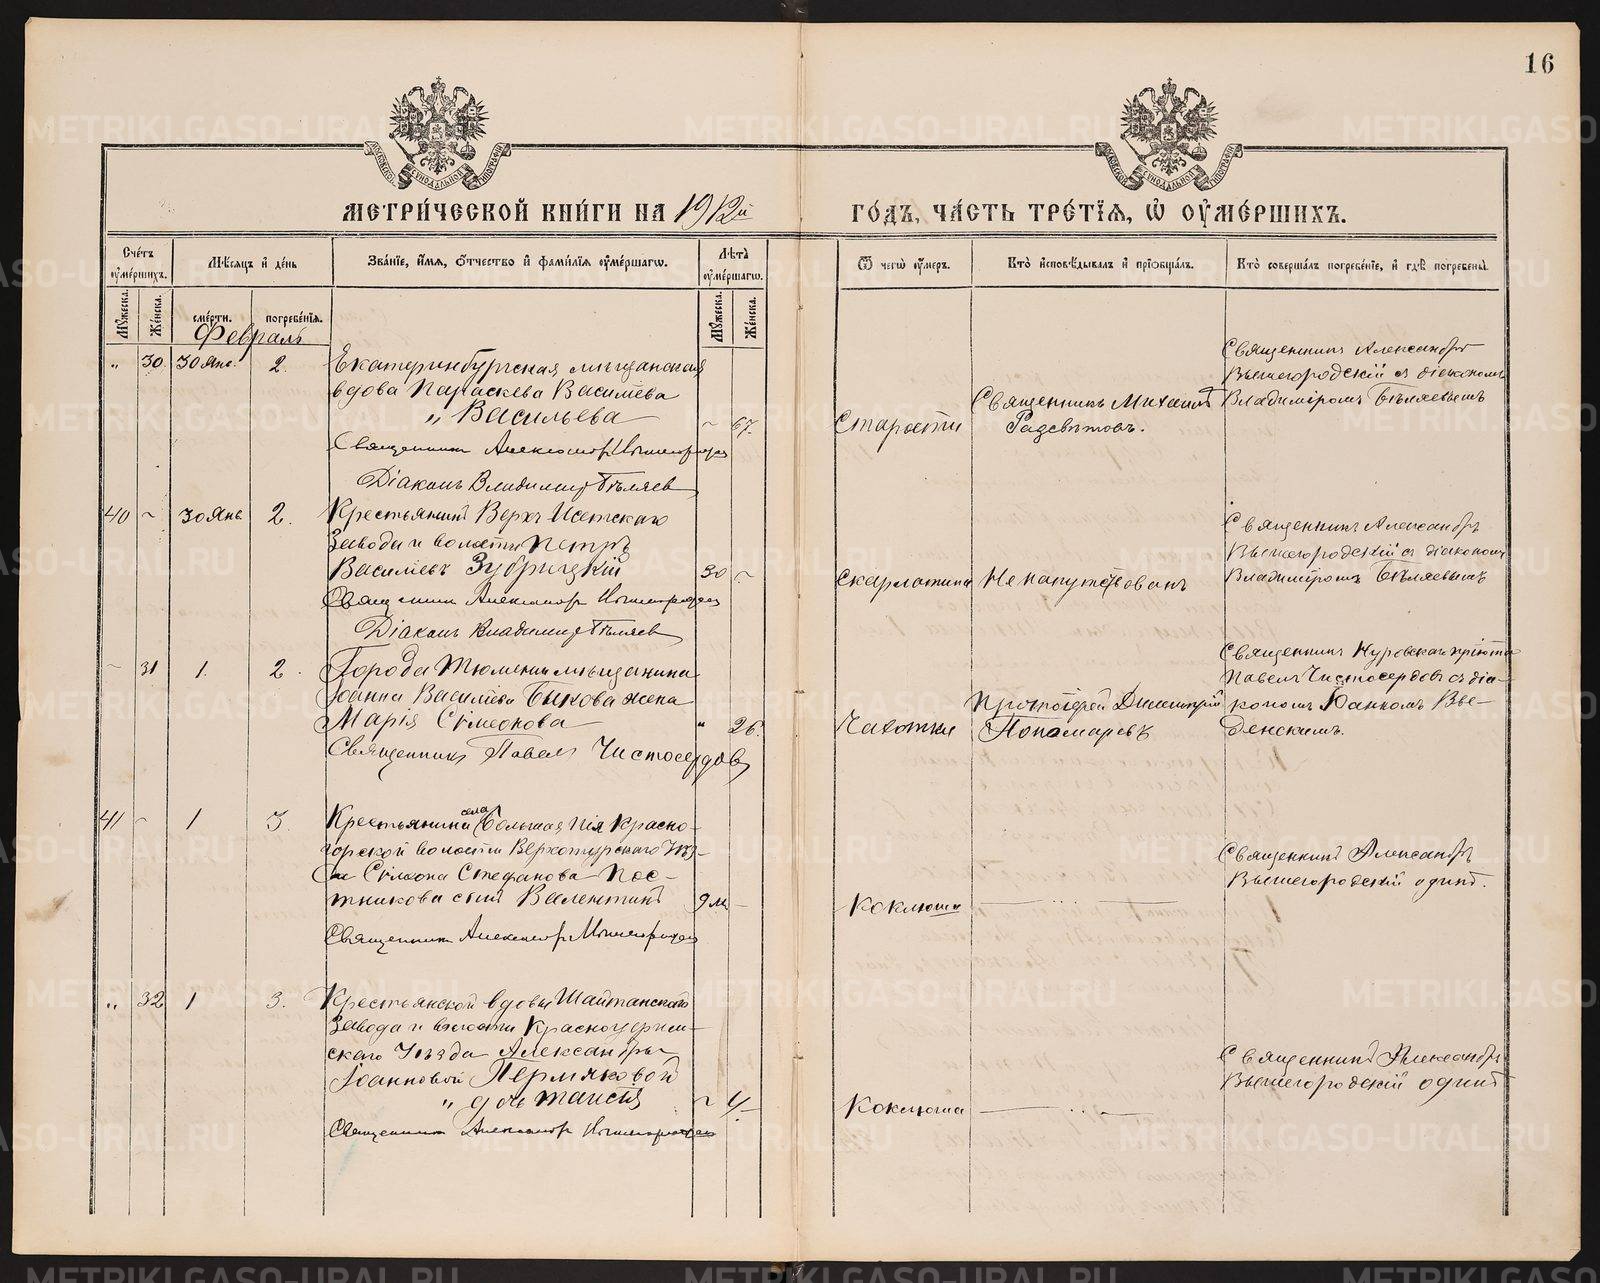 16
МЕТРИ́ЧЕСКОЙ КНИ́ГИ НА 1912й ГО́ДЪ, ЧА́СТЬ ТРЕ́ТЇѦ, Ѡ҆ ОУ҆МЕ́РШИХЪ.
Сче́тъ оу҆ме́ршихъ.
Мѣ́сѧцъ и҆ де́нь
Зва́нїе, и҆́мѧ, ѻ҆́тчество и҆ фами́лїѧ оу҆ме́ршагѡ.
Лѣ́та оу҆ме́ршагѡ.
Ѿ чегѡ̀ оу҆́меръ.
Кто̀ и҆сповѣ́дывалъ и҆ прїѻбща́лъ.
Кто̀ соверша́лъ погребе́нїе, и҆ гдѣ̀ погребены̀.
Мꙋ́жеска.
Же́нска.
сме́рти.
погребе́нїѧ.
Мꙋ́жеска.
Же́нска.
Февраль
" 30. 30 Янв. 2.
Екатеринбургская мѣщанская
вдова Параскева Васильева
" Васильева
~ 67.
Священникъ Александръ Вышегородскій
Діаконъ Владимиръ Бѣляевъ
Старости
Священникъ Михаилъ
Разсвѣтовъ.
Священникъ Александръ
Вышегородскій съ діакономъ
Владиміромъ Бѣляевымъ
40 ~ 30 Янв. 2.
Крестьянинъ Верхъ Исетскаго
Завода и волости Петръ
Васильевъ Зубрицкій
30 ~
Священникъ Александръ Вышегородскій
Діаконъ Владимиръ Бѣляевъ
Скарлатина
Не напутствованъ
Священникъ Александръ
Вышегородскій съ діакономъ
Владиміромъ Бѣляевымъ
~ 31 1. 2.
Города Тюмени мѣщанина
Іоанна Васильева Быкова жена
Марія Сѵмеонова
" 26.
Священникъ Павелъ Чистосердовъ
Чахотки
Протоіерей Димитрій
Пономаревъ
Священникъ Нуровскаго пріюта
Павелъ Чистосердовъ съ діа-
кономъ Іоанномъ Вве-
денскимъ.
41 ~ 1 3.
Крестьянина села
горской волости Верхотурскаго Уѣз-
да Сѵмеона Стефанова Пос-
тникова сынъ Валентинъ
9 м. –
Священникъ Александръ Вышегородскій
Коклюша
Священникъ Александръ
Вышегородскій одинъ.
" 32 1 3.
Крестьянской вдовы Шайтанскаго
Завода и волости Красноуфим-
скаго Уѣзда Александры
Іоанновой Пермяковой
" дочь Таисія
~ 4.
Священникъ Александръ Вышегородскій
Коклюша
Священникъ Александръ
Вышегородскій одинъ
METRIKI.GASO-URAL.RU